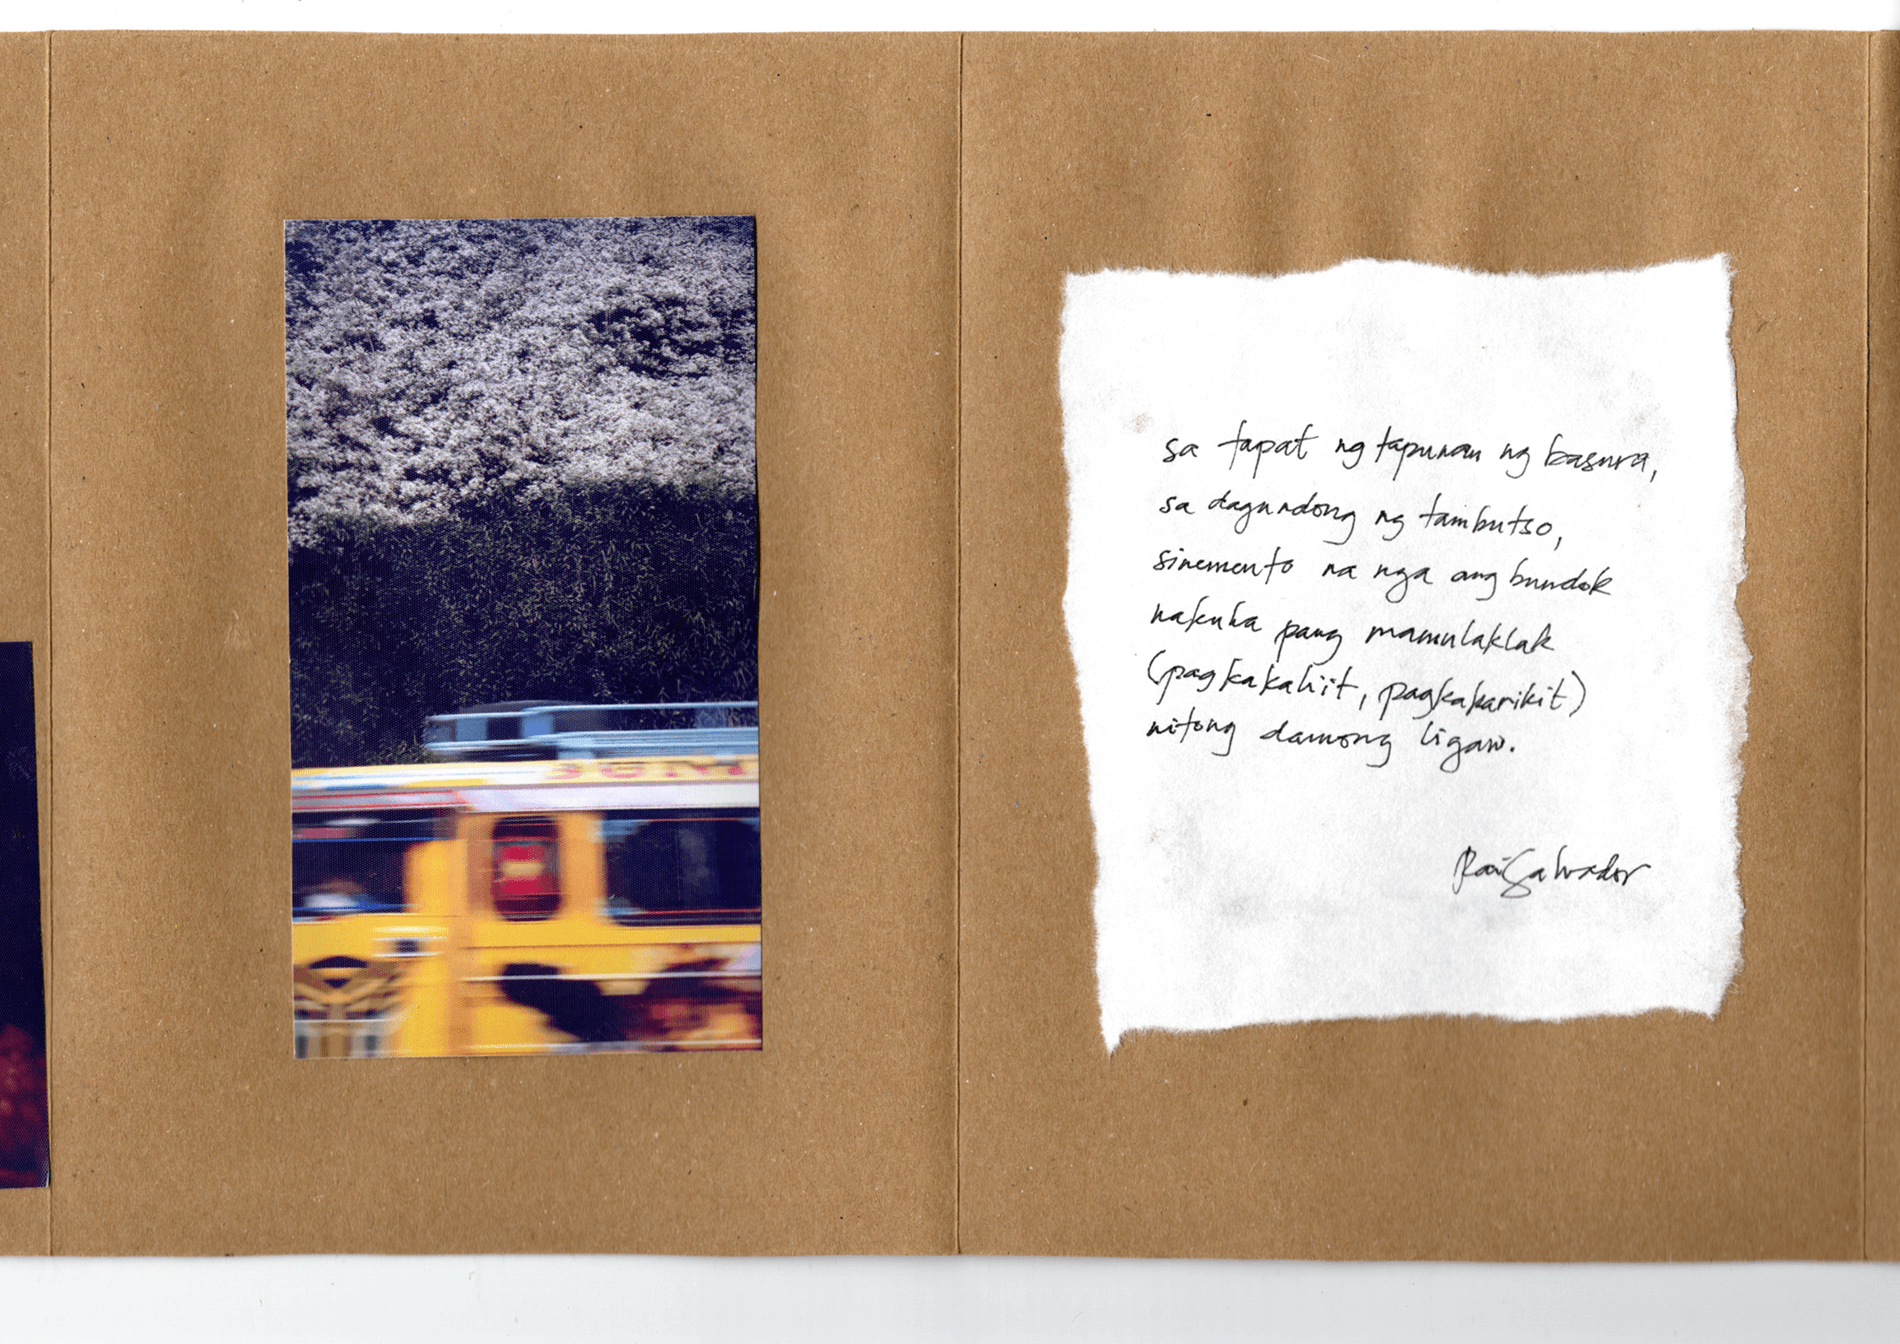 sa tapat ng tapunan ng basura,
sa dagundong ng tambutso,
sinemento na nga ang bundok
nakuha pang mamulaklak
(pagkakahiit, pagkakarikit)
nitong damong ligaw.
Rai Salvador